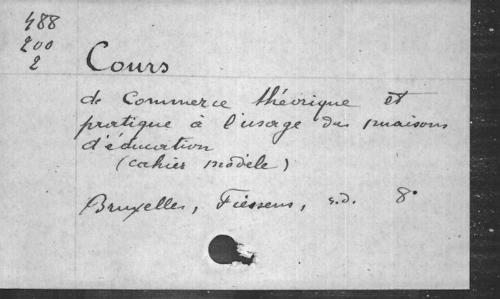 488
200
2
Cours
de Commerce théorique et
pratique à l'usage des maisons
d'éducation
(cahier modèle)
Bruxelles, Fiessens, s.d. 8°